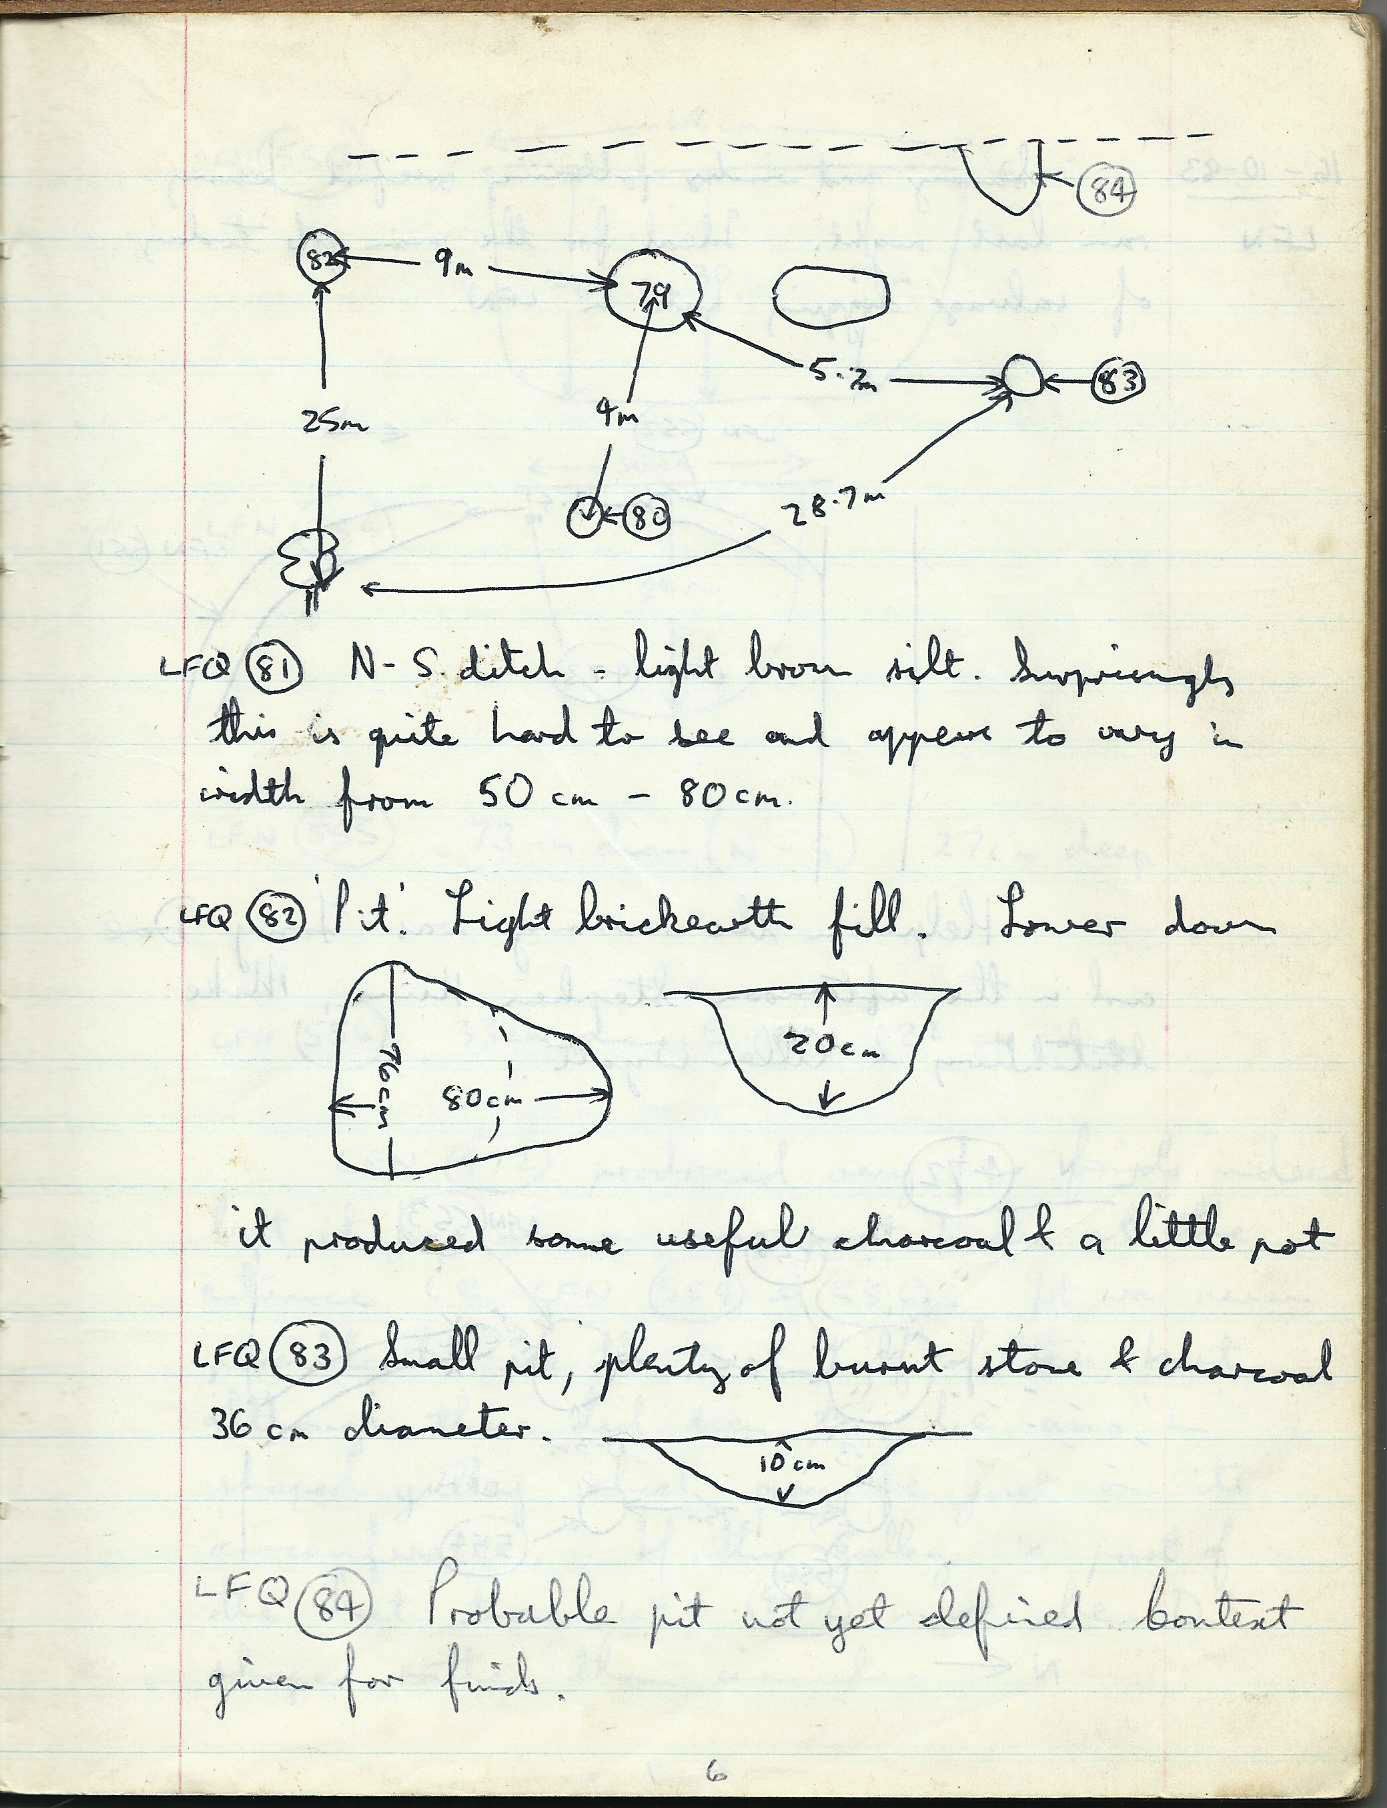 84
82 9m 79
5.7m 83
25m 4m
28.7m
80
LFQ 81 N-S. ditch - light brown silt. Surprisingly
this is quite hard to see and appears to vary in
width from 50 cm - 80cm.
LFQ 82 'Pit'. Light brickearth fill. Lower down
76cm 80cm 20cm
it produced some useful charcoal & a little pot
LFQ 83 Small pit, plenty of burnt stone & charcoal
36 cm diameter.
10 cm
LFQ 84 Probable pit not yet defined Context
given for finds.
6